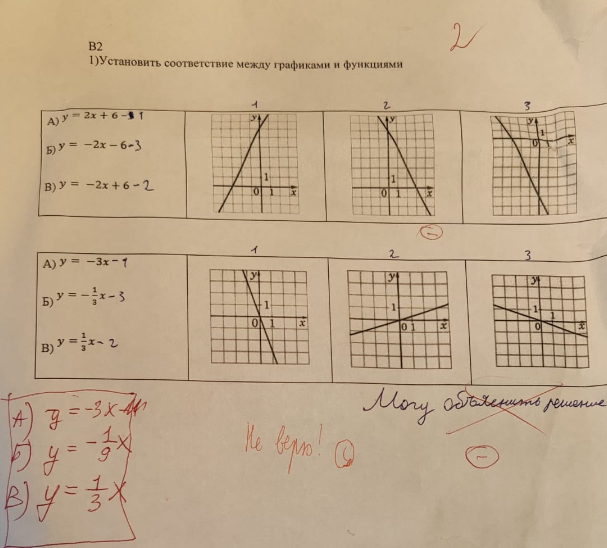 2
В2
1)Установить соответствие между графиками и функциями
1 2 3
А) y = 2x + 6 - 1
Б) y = −2x − 6 - 3
В) y = −2x + 6 - 2
y 1 0 1 x
y 1 0 1 x
y 1 0 1 x
1 2 3
А) y = −3x - 1
Б) y = −1/3 x - 3
В) y = 1/3 x - 2
y 1 0 1 x
y 1 0 1 x
y 1 0 1 x
Могу объяснить решение
Не верю!
А) y = -3x
Б) y = -1/9 x
В) y = 1/3 x